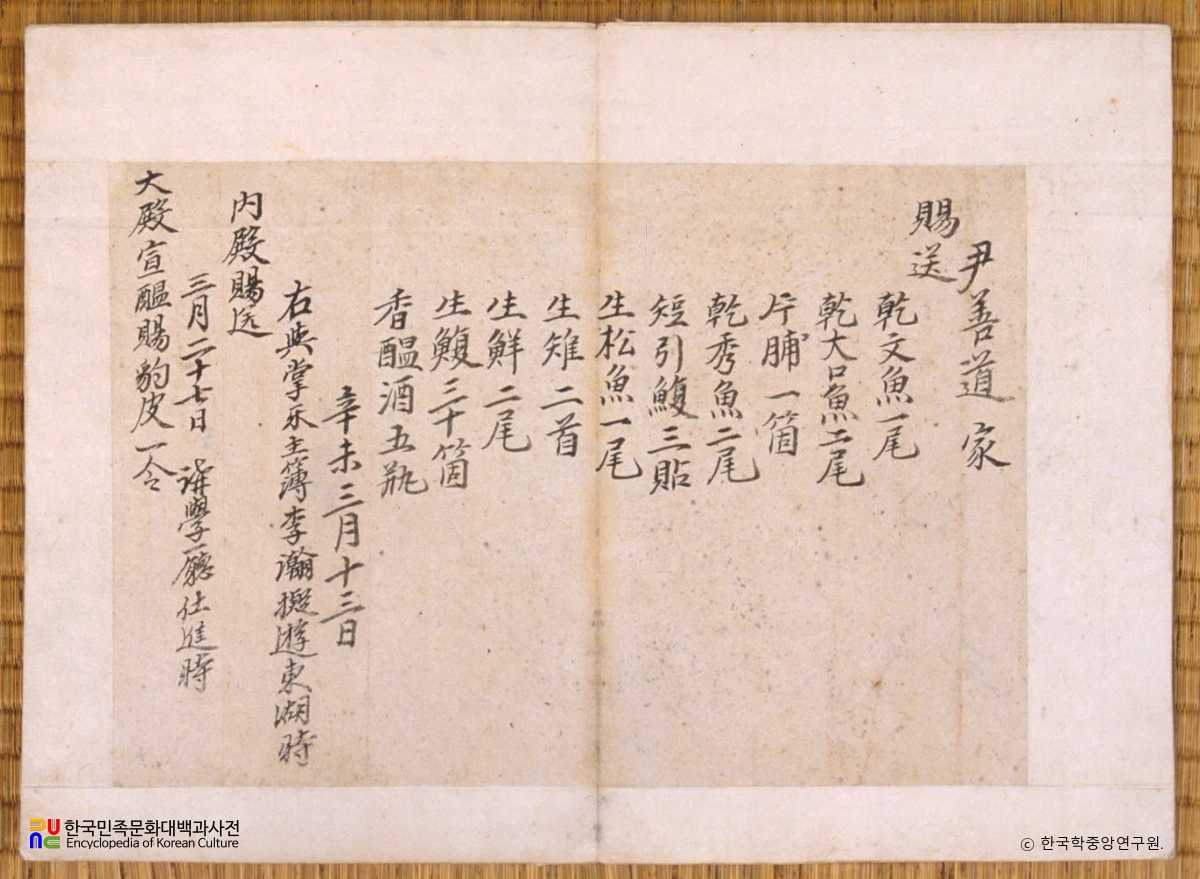 尹善道家
賜送
乾文魚一尾
乾大口魚二尾
片脯一箇
乾秀魚二尾
短引鰒三貼
生松魚一尾
生雉二首
生鮮二尾
生鰒三十箇
香醞酒五瓶
辛未三月十三日
右與掌樂主簿李瀚擬遊東湖時
內殿賜送
三月二十七日 講學廳仕進時
大殿宣醞賜豹皮一令
한국민족문화대백과사전
Encyclopedia of Korean Culture
ⓒ 한국학중앙연구원.